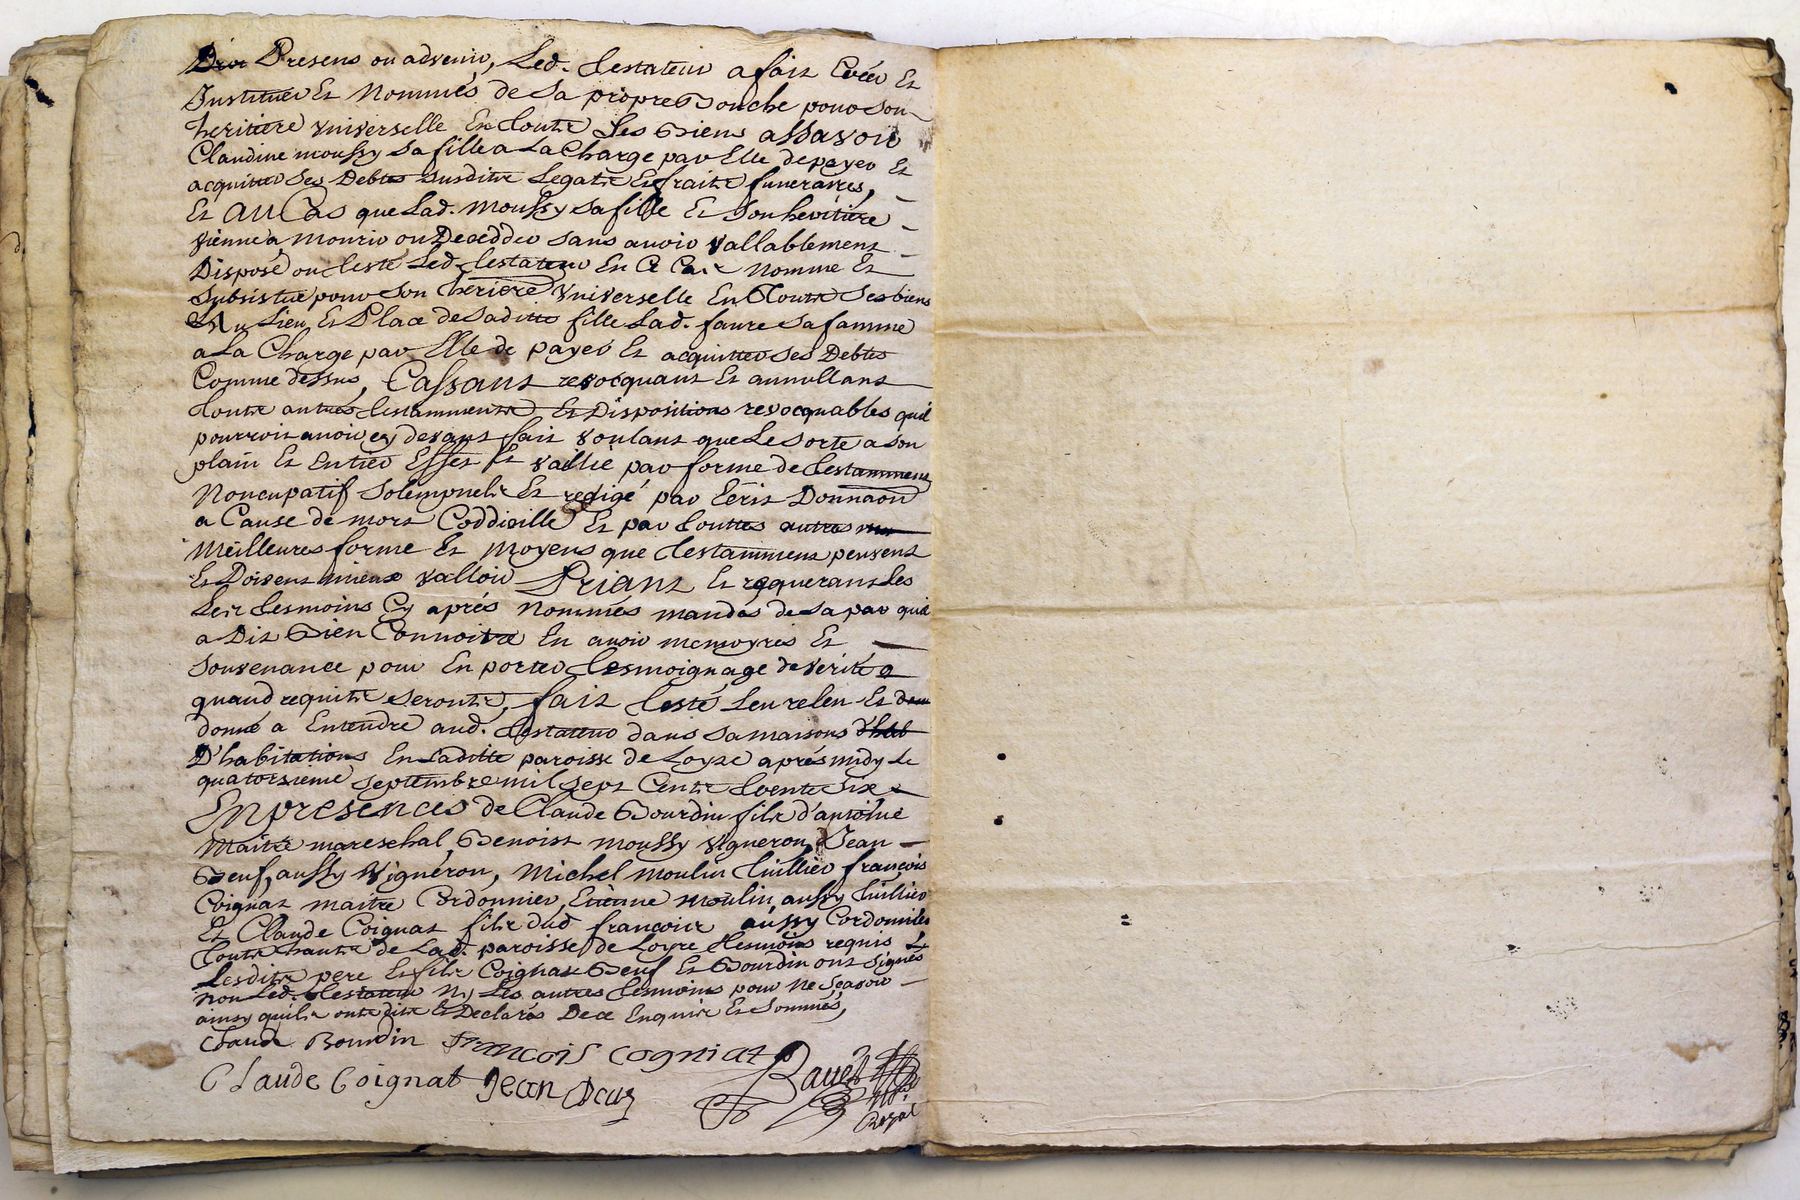 Presens ou advenir, Led. testateur a fait Créer Et
Instituér Et Nommés de Sa propre Bouche pour son
heritiere universelle En toutt Ses Biens assavoir
Claudine moussy Sa fille a La Charge par Elle de payer Et
acquitter Ses Debtes susditte Legatz Et fraitz funeraires,
Et au Cas que Lad. moussy sa fille Et Son heritiere
vienne a Mourir ou Deceddér sans avoir vallablement
Disposé ou testé Led. testateur En Ce Cas Nomme Et
Subsistue pour Son heriere Universelle En Toutz Ses biens
Au Lieu Et Place de Saditte fille Lad. faure Sa famme
a La Charge par Elle de payer Et acquitter Ses Debtes
Comme dessus, Cassant revocquant Et annullant
toutz autres testamments Et Dispositions revocquables quil
pourroit avoir cy devant fait voulant que Le Sorte a Son
plain Et Entier Effet Et vaillie par forme de testamment
Noncupatif Solempnelz Et redigé par Ecrit Donnaon
a Cause de mort Coddicille Et par touttes autres
Meilleures forme Et Moyens que testamment peuvent
Et Doivent mieux valloir Priant Et requerant Les
temoins Cy aprés Nommés mandés de Sa par quil
a Dit Bien Connoitre En avoir memoyres Et
Souvenance pour En porter tesmoignage de verité
quand requitz Serontz, fait testé Leu releu Et
donné a Entendre aud. testateur dans Sa maisons
D'habitations En Laditte paroisse de Loyse aprés midy Le
quatorsieme Septembre mil Sept Centz trente Six
En presences de Claude Bourdin filz d'antoine
Maitre mareschal, Benoist moussy vigneron, Jean
Beuf, aussy vignéron, Michel moulin tuillier françois
Coignat maitre Cordonnier, Etienne moulin aussy tuillier
Et Claude Coignat filz dud françois aussy Cordonnier
toutz hantz de Lad. paroisse de Loyse tesmoins requis
Lesditz pere Et filz Coignat Beuf Et Bourdin ont Signés
non Led. testateur Ny Les autres tesmoins pour Ne Scavoir
ainsy quilz ontz ditz Et Declarés De ce Enquiz Et Sommés,
Claude Bourdin françois cogniat
Claude Coignat Jean
Royal